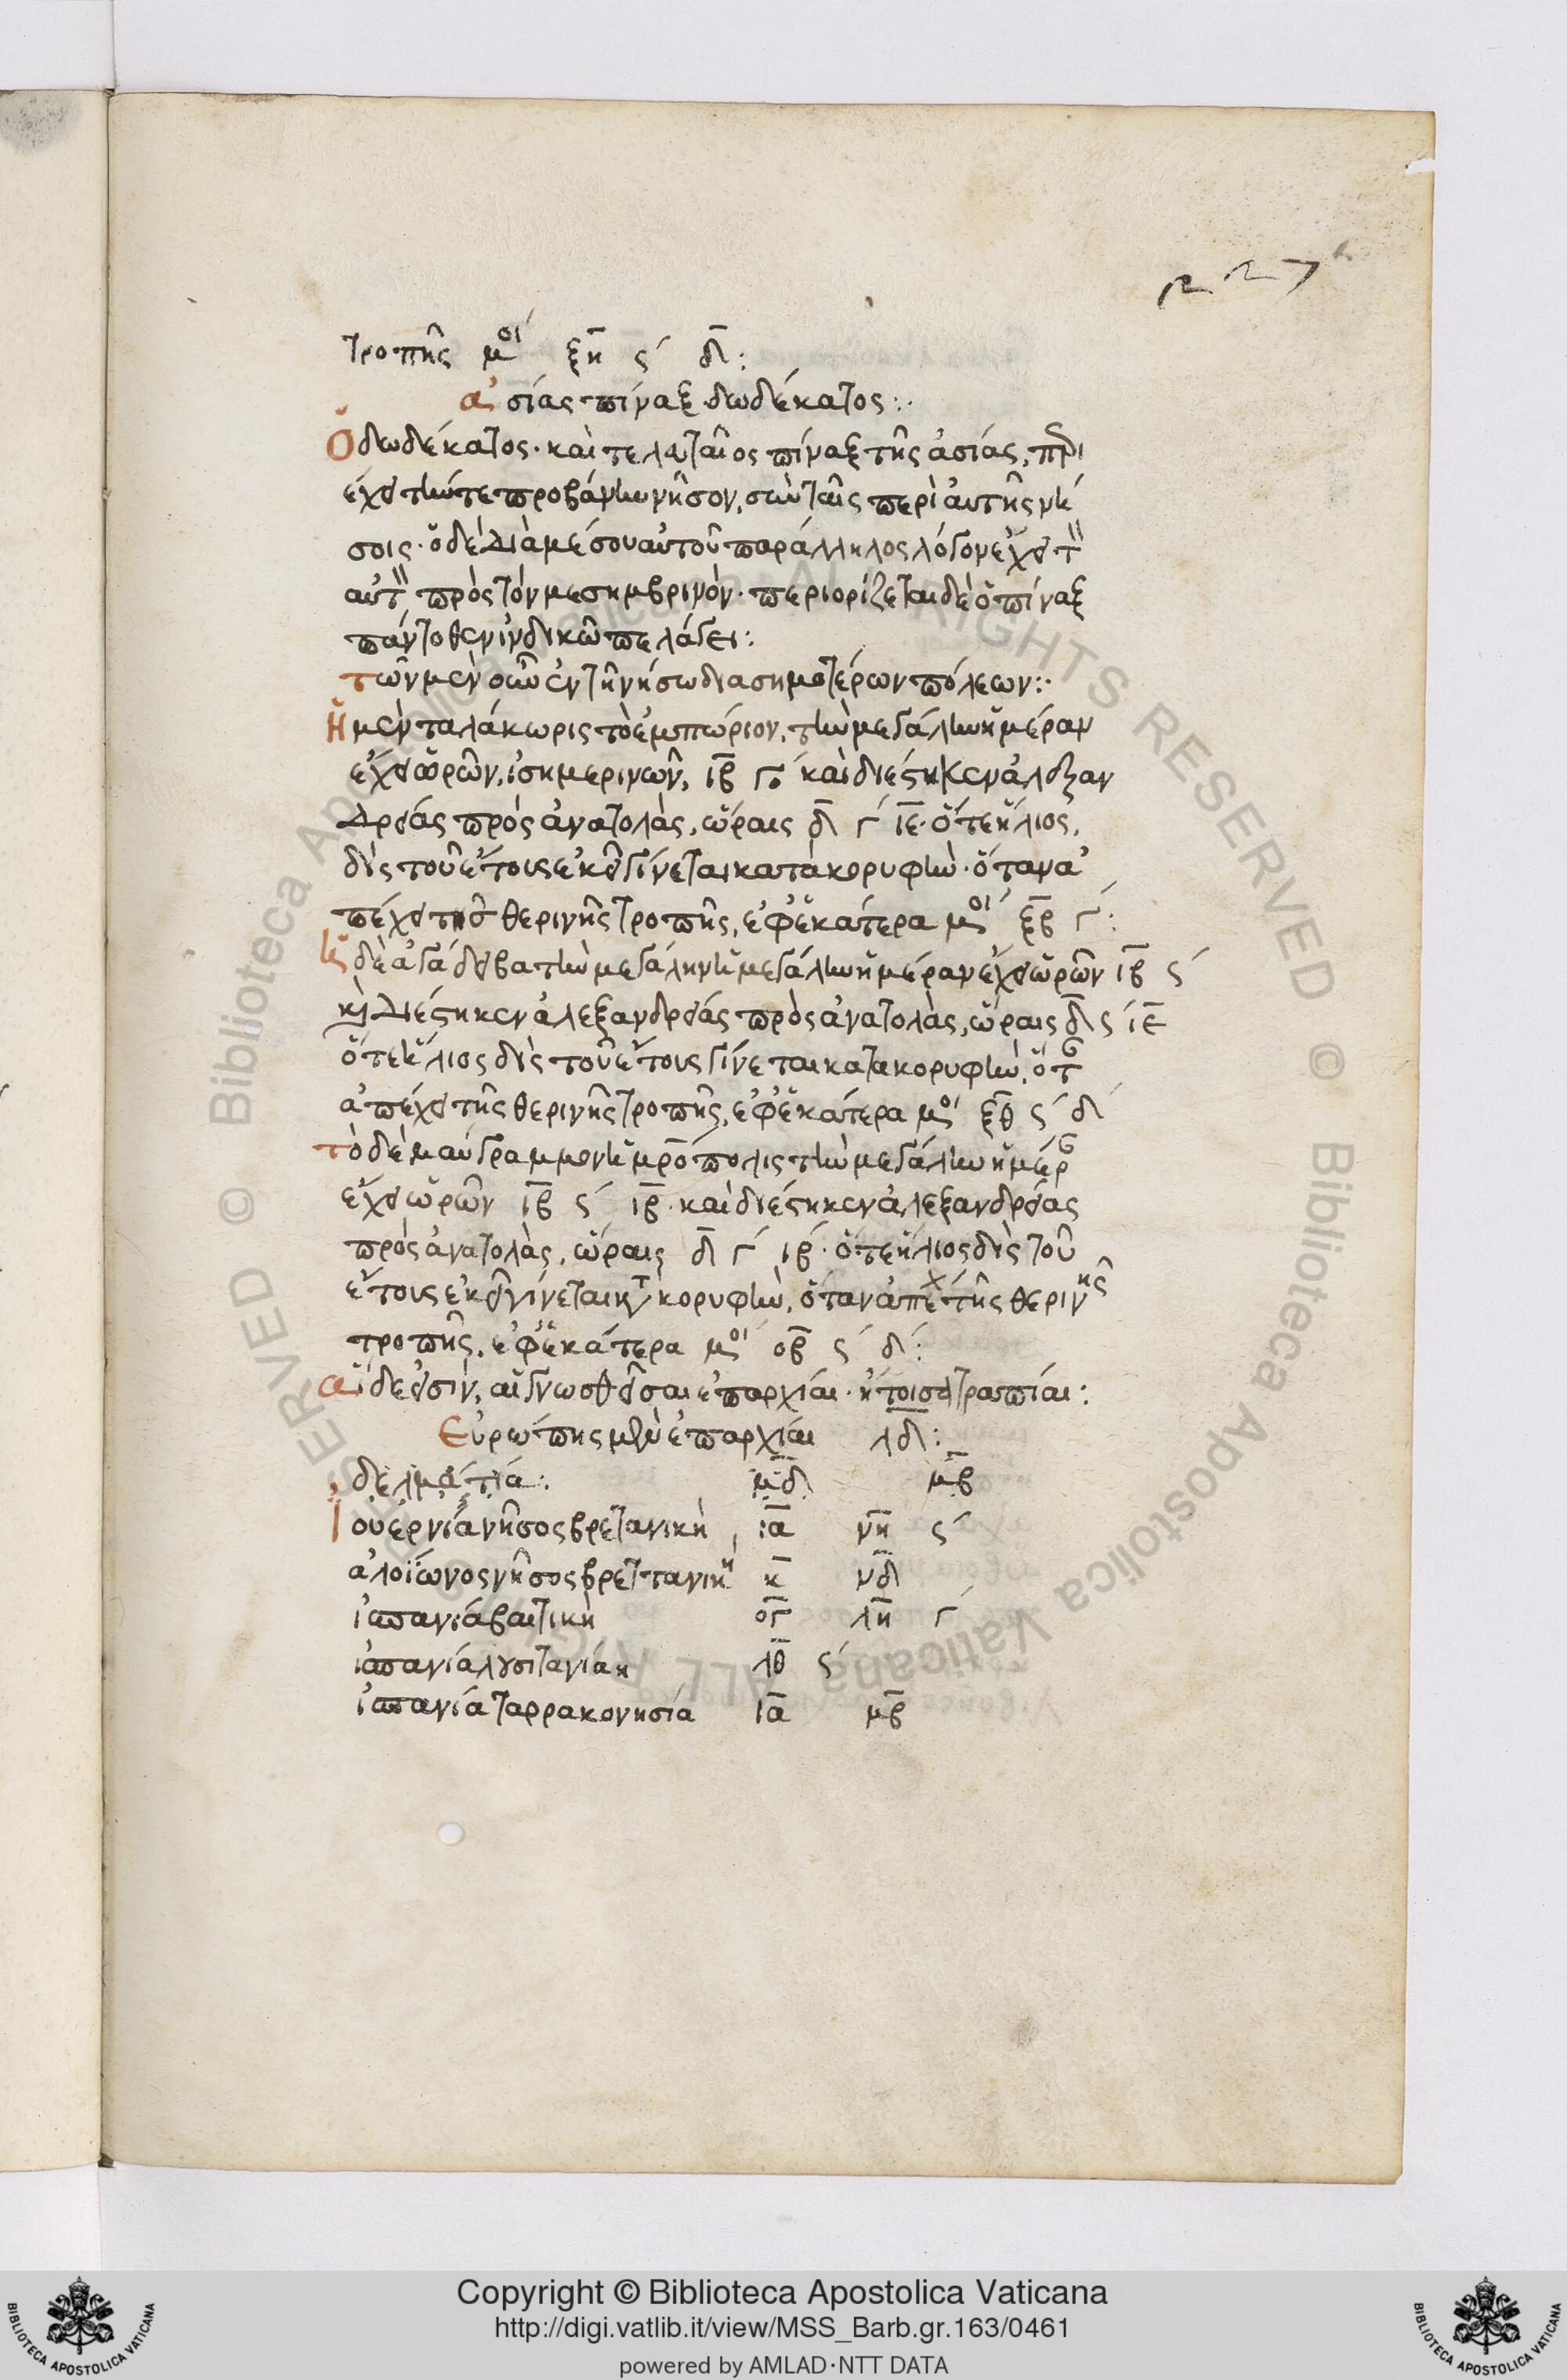 227
τροπῆς μοί ξη ς´ δ:
ἀσίας πίναξ δωδέκατος:·
Ὁ δωδέκατος· καὶ τελευταῖος πίναξ τῆς ἀσίας, περι
έχει τήν τε προβάνην νῆσον, σὺν ταῖς περὶ αὐτῆς νή
σοις· ὁ δὲ διὰ μέσου αὐτοῦ παράλληλος λόγον ἔχει τ
αὐτ πρὸς τὸν μεσημβρινόν· περιορίζεται δὲ ὁ πίναξ
πάντοθεν ἰνδικῶ πελάγει:
τῶν μὲν οὖν ἐν τῆ νήσω διασημοτέρων πόλεων:·
Ἡ μὲν ταλάκωρις τὸ ἐμπώριον, τὴν μεγάλην ἡμέραν
ἔχει ὡρῶν, ἰσημερινῶν, ιβ γο´ καὶ διέστηκεν ἀλεξαν
δρείας πρὸς ἀνατολὰς, ὥραις δ γ´ ιε· ὅ τε ἥλιος,
δὶς τοῦ ἔτους ἐκεῖ γίνεται κατὰ κορυφὴν· ὅταν ἀ
πέχει τῆς θερινῆς τροπῆς, ἐφ ἑκάτερα μοί ξβ γ´:
ἡ δὲ ἀγάδειβα τὴν μεγάλην ἡ μεγάλην ἡμέραν ἔχει ὡρῶν ιβ ς´
κὶ διέστηκεν ἀλεξανδρείας πρὸς ἀνατολὰς, ὥραις δ ς´ ιε
ὅ τε ἥλιος δὶς τοῦ ἔτους γίνεται κατα κορυφὴν, ὅτ
ἀπέχει τῆς θερινῆς τροπῆς, ἐφ ἑκάτερα μοί ξθ ς´ δ´
τὸ δὲ μαύγραμμον ἡ μρόπολις τὴν μεγάλην ἡμέρ
ἔχει ὡρῶν ιβ ς´ ιβ· καὶ διέστηκεν ἀλεξανδρείας
πρὸς ἀνατολὰς, ὥραις δ γ´ ιβ· ὅ τε ἥλιος δὶς τοῦ
ἔτους ἐκεῖ γίνεται κτ κορυφὴν, ὅταν ἀπέχ τῆς θερινῆς
τροπῆς, ἐφ ἑκάτερα μοί οβ ς´ δ´:
αἵδε εἰσὶν, αἱ γνωσθεῖσαι ἐπαρχίαι· ἤτοι σατραπίαι:
Εὐρώπης μὲν ἐπαρχίαι λδ:
δελματία: μδ μβ
Ἰουερνία νῆσος βρετανικὴ ια νη ς´
ἀλοϊώνος νῆσος βρεττανικὴ κ νδ
ἱσπανία βαιτικὴ ογ λη γ´
ἱσπανία λυσιτανίακ λθ ς´
ἱσπανία ταρρακονησία ια μβ
© Biblioteca Apostolica Vaticana ALL RIGHTS RESERVED © Biblioteca Apostolica Vaticana ALL RIGHTS RESERVED
Copyright © Biblioteca Apostolica Vaticana
http://digi.vatlib.it/view/MSS_Barb.gr.163/0461
powered by AMLAD·NTT DATA
BIBLIOTECA APOSTOLICA VATICANA
BIBLIOTECA APOSTOLICA VATICANA